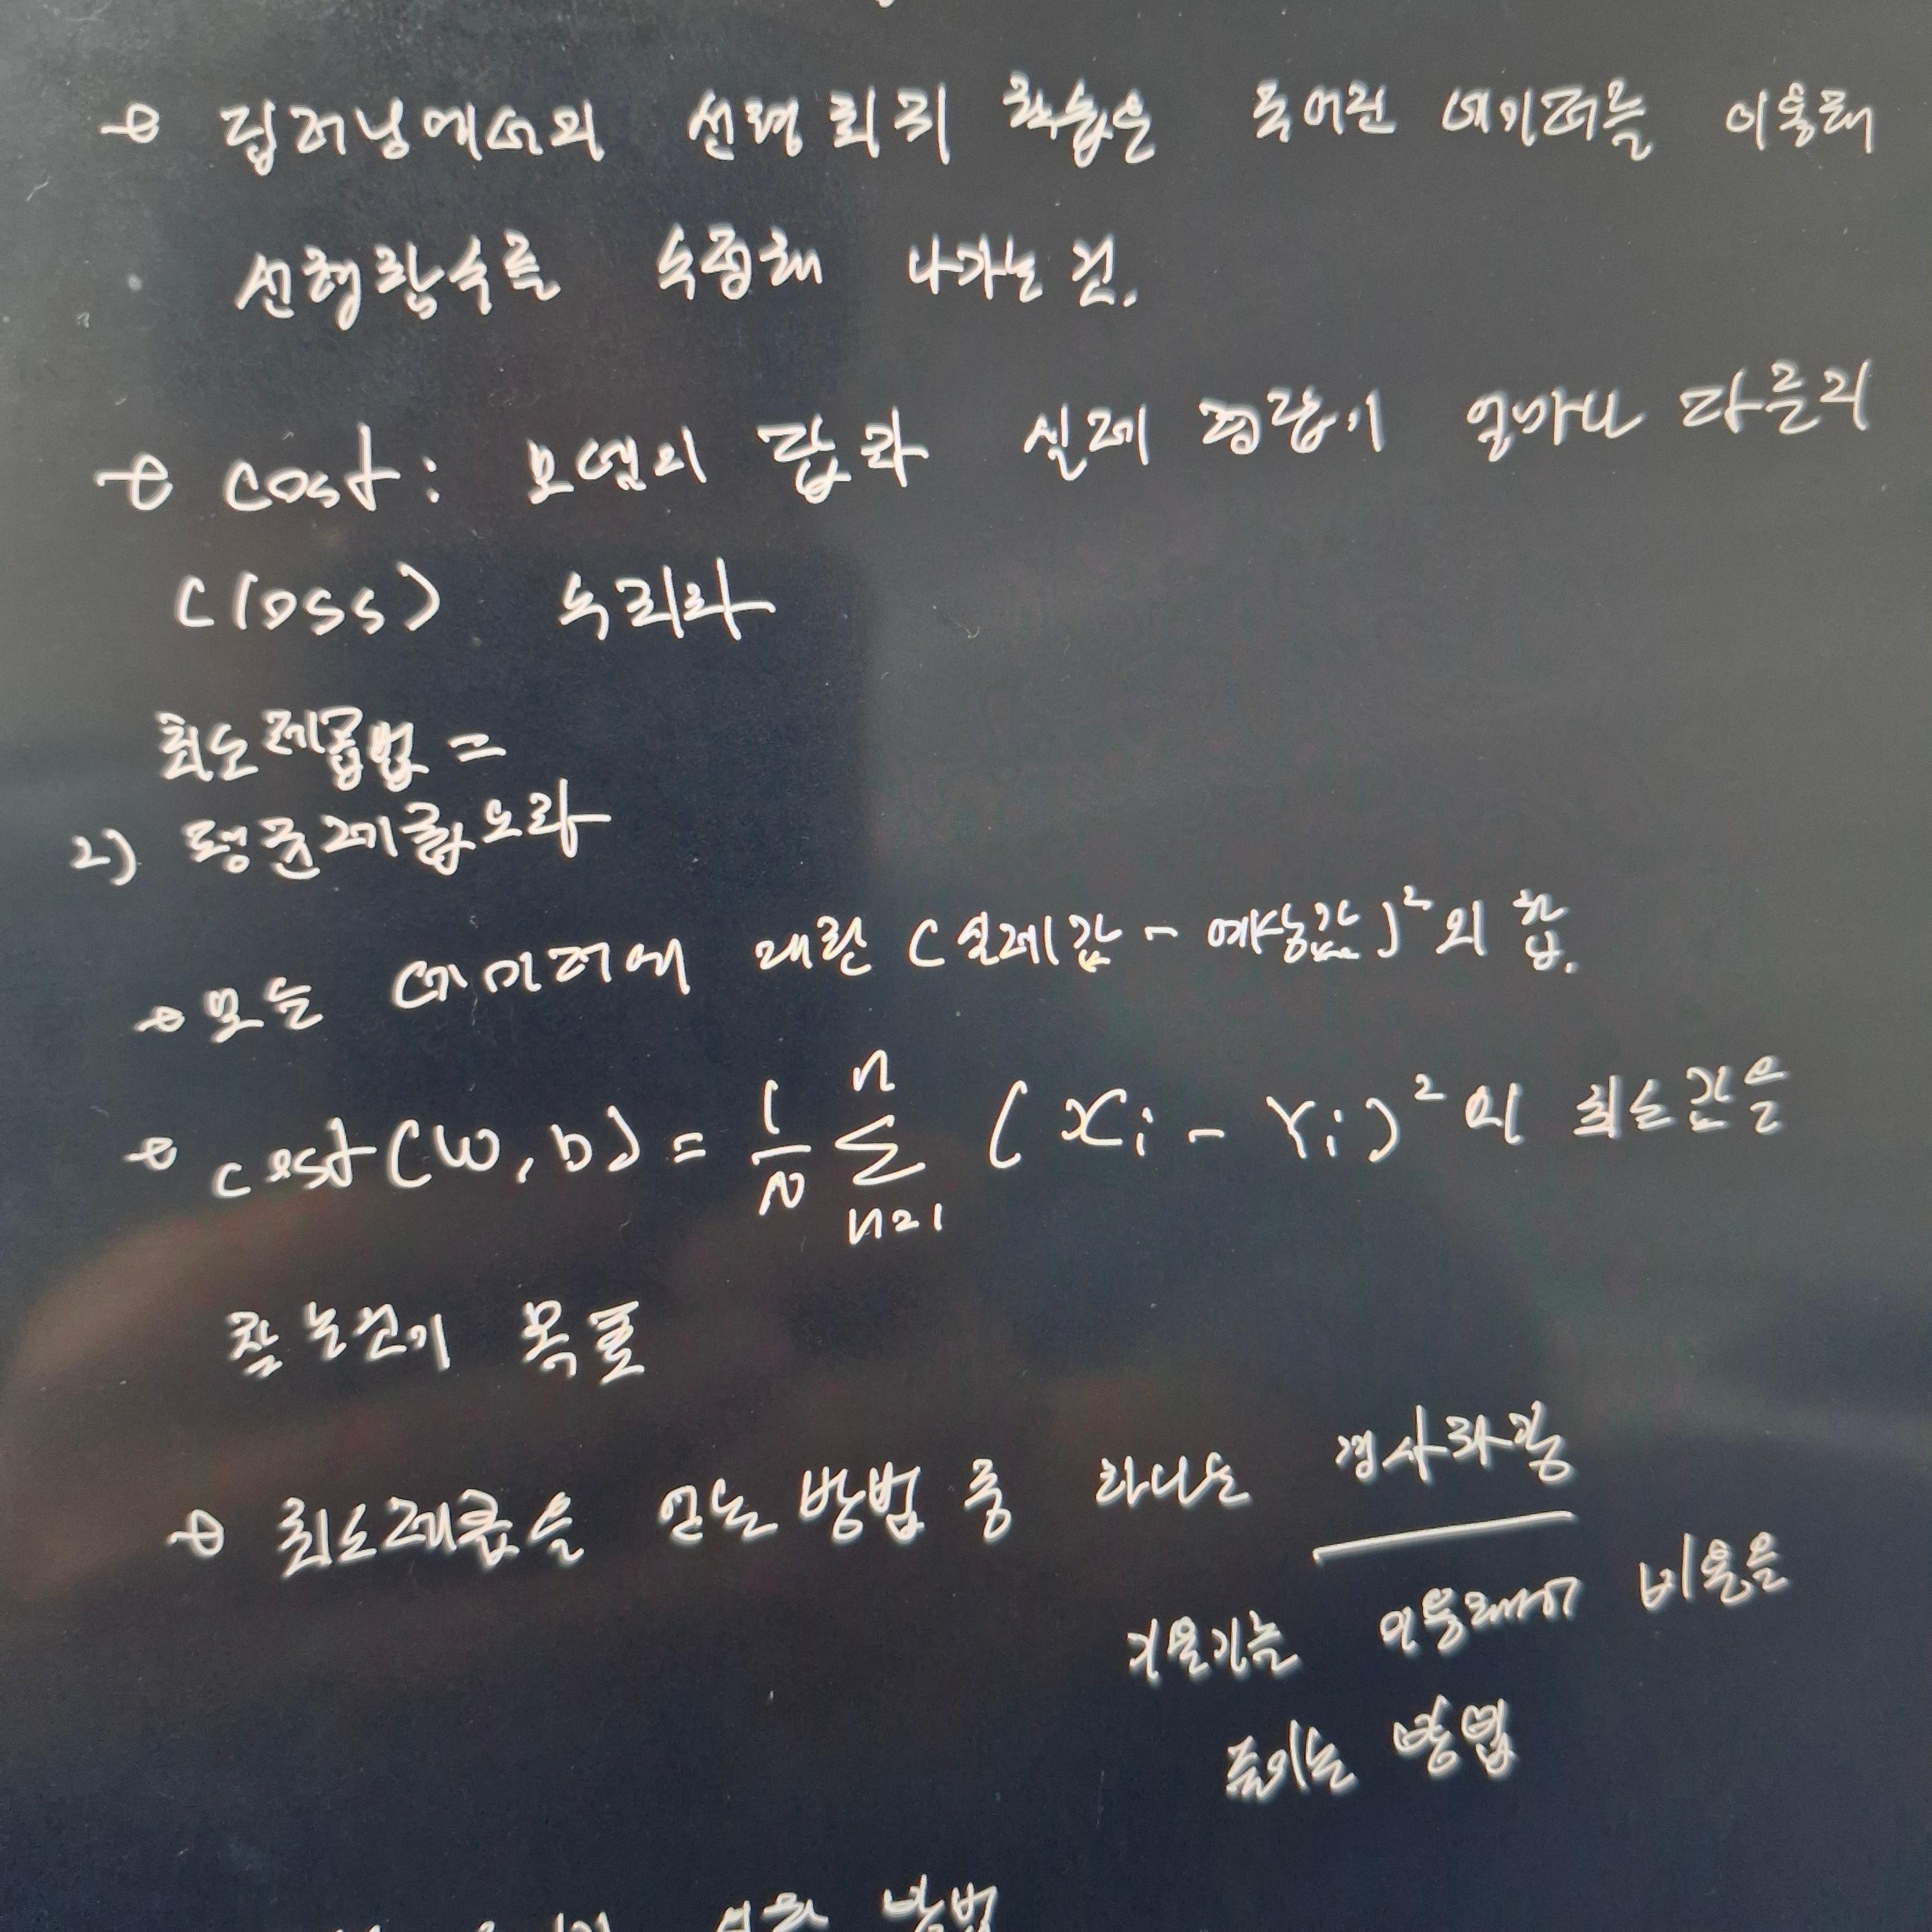 → 딥러닝에서의 선형 회귀 학습은 주어진 데이터를 이용해
선형함수를 수정해 나가는 것.
→ cost: 모델의 답과 실제 정답이 얼마나 다른지
(loss) 수치화
최소제곱법 =
2) 평균제곱오차
→ 모든 데이터에 대한 (실제값 - 예상값)²의 합.
→ cost(W, b) = 1/N n Σ n=1 (Xi - Yi)²의 최소값을
찾는것이 목표
→ 최소제곱을 얻는 방법 중 하나는 경사하강
기울기를 이용해서 비용을
줄이는 방법
방법